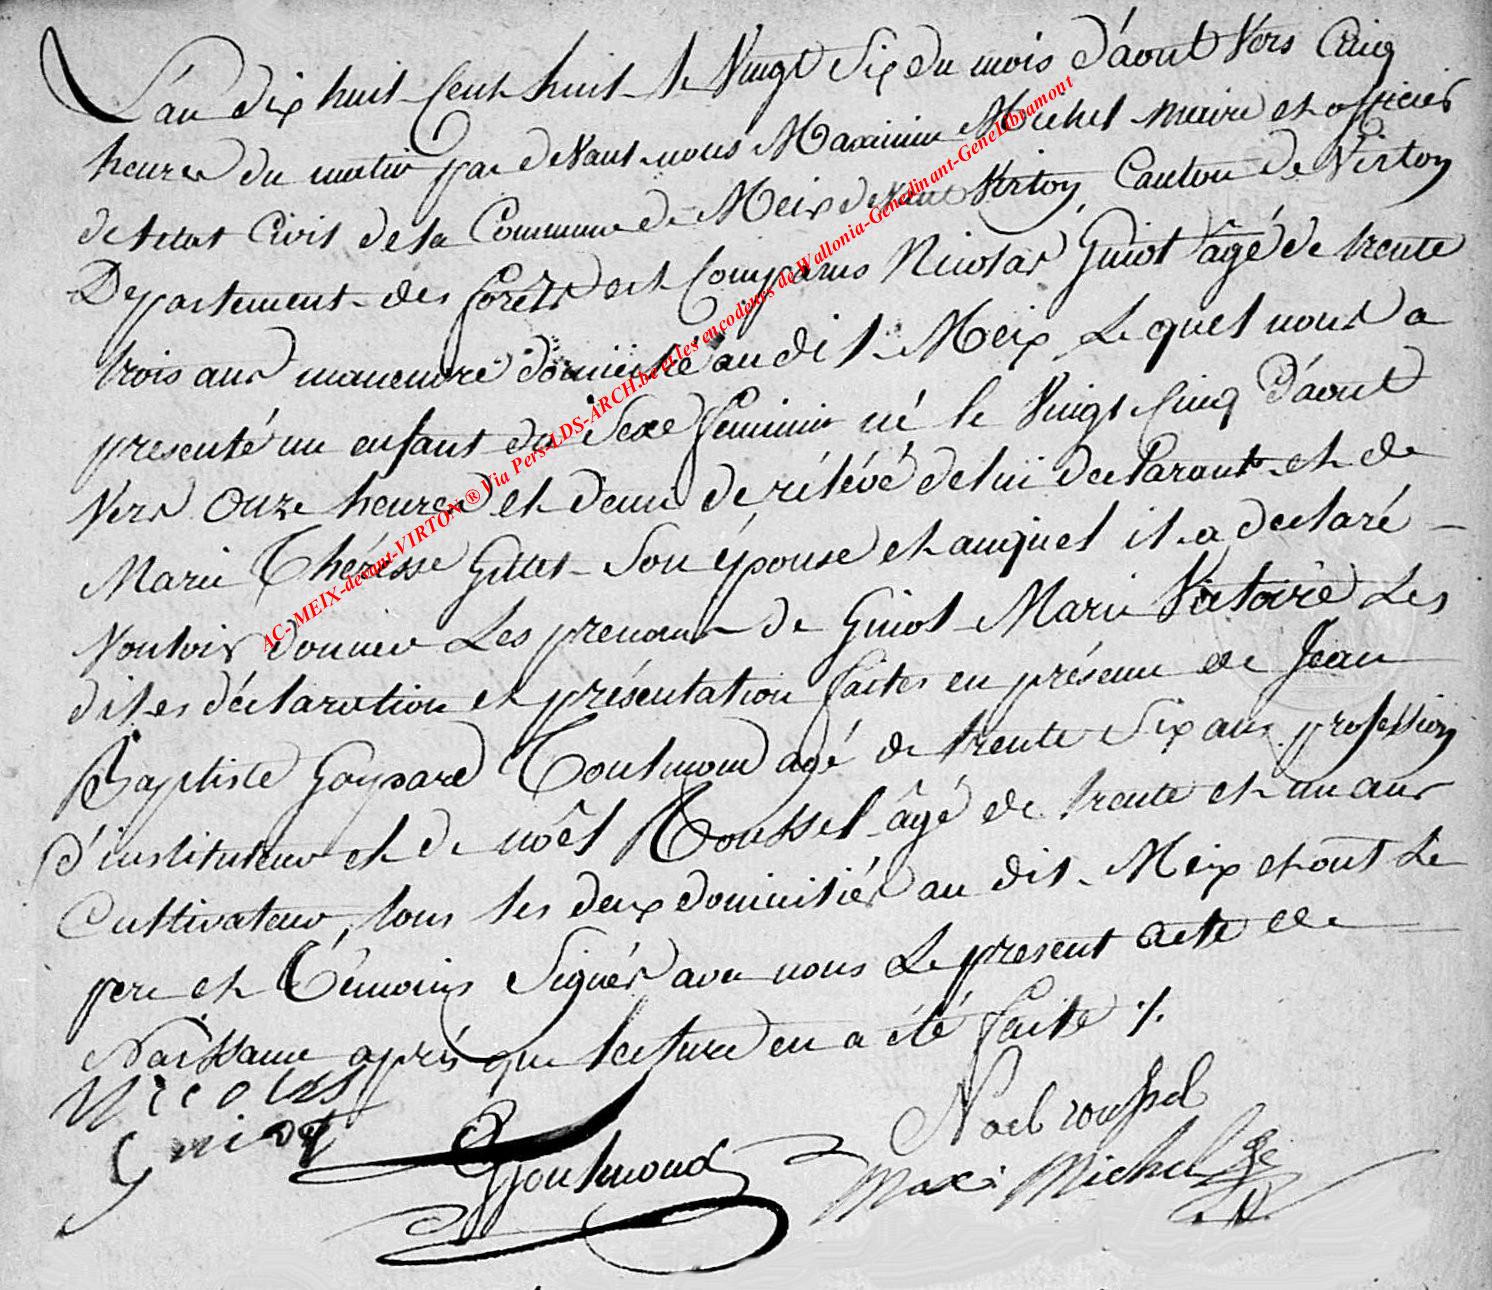 L'an dix huit Cent huit le Vingt Six du mois d'aout Vers Cinq
heures du matin par devant nous Maximin Michel maire et officier
de l'etat Civil de la Commune de Meix devant Virton, Canton de Virton
Departement des forêts est Comparus Nicolas Guiot âgé de trente
trois ans maneuvre domicilié au dit Meix Le quel nous a
presenté un enfant du Sexe feminin né le Vingt Cinq d'aout
Vers Onze heures et demi de rélévé de lui declarant et de
Marie Thérésse Gillet Son épouse et auquel il a declaré
Vouloir donner Les prenoms de Guiot Marie Victoire Les
dites déclaration et présentation faites en présence de Jean
Baptiste Gaspard Toulmond agé de trente Six ans profession
d'instituteur et de noêl Roussel âgé de trente et un ans
Cultivateur, tous les deux domiciliés au dit Meix et ont Le
pere et Témoins Signés avec nous Le present acte de
Naissance aprés que lecture en a été faite ·/.
Nicolas
Guiot
Toulmond
Noel roussel
Maxi Michel
AC- MEIX-devant-VIRTON ® Via Pers-LDS-ARCH.be et les encodeurs de Wallonia-Genedinant-GeneLibramont